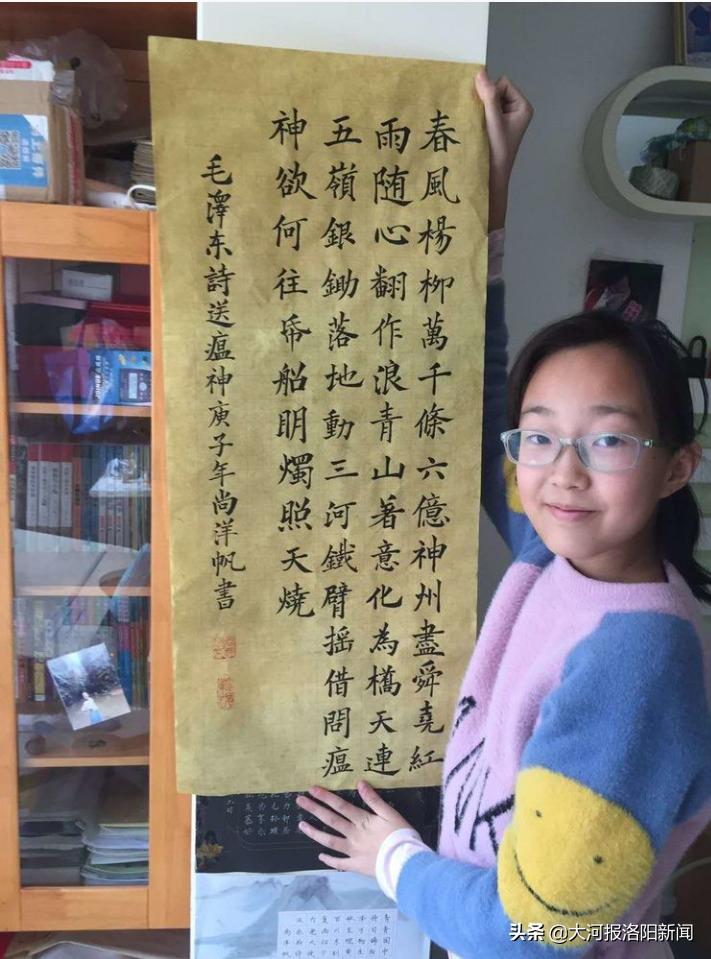 春風楊柳萬千條六億神州盡舜堯紅
雨随心翻作浪青山著意化為槗天連
五嶺銀鋤落地動三河鐵臂摇借問瘟
神欲何往帋船眀燭照天燒
毛澤东詩送瘟神庚子年尚洋帆書
头条 @大河报洛阳新闻